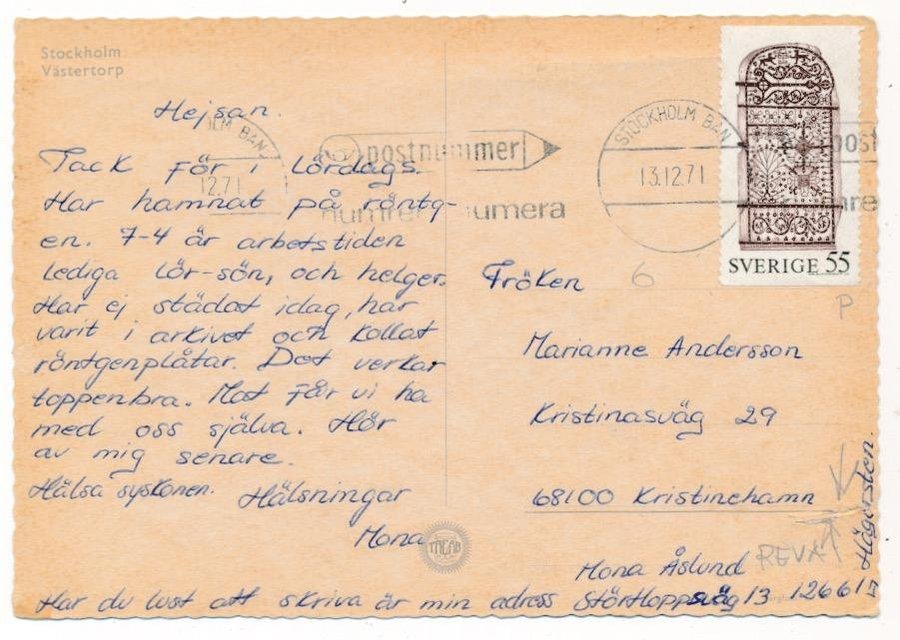 Stockholm
Västertorp
Hejsan.
Tack för i Lördags.
Har hamnat på röntg-
en. 7-4 är arbetstiden
Lediga Lör-sön, och helger.
Har ej städat idag, har
varit i arkivet och Kollat
röntgenplåtar. Det verkar
toppenbra. Mat får vi ha
med oss själva. Hör
av mig senare.
Hälsa syskonen. Hälsningar
Mona
TACAB
Har du lust att skriva är min adress
STOCKHOLM BAN
13.12.71
postnummer
numrera
LM BAN
12.71
post
SVERIGE 55
6
P
Fröken
Marianne Andersson
Kristinasväg 29
68100 Kristinehamn
REVA
Mona Åslund
Störtloppsväg 13 12661
Hägersten.